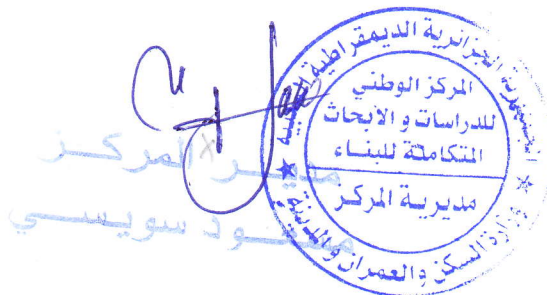 الجمهورية الجزائرية الديمقراطية الشعبية
المركز الوطني
للدراسات و الابحاث
المتكاملة للبنــاء
مديرية المركز
وزارة السكن والعمران والمدينة
مديــر المركــز
مسعــود سويســي